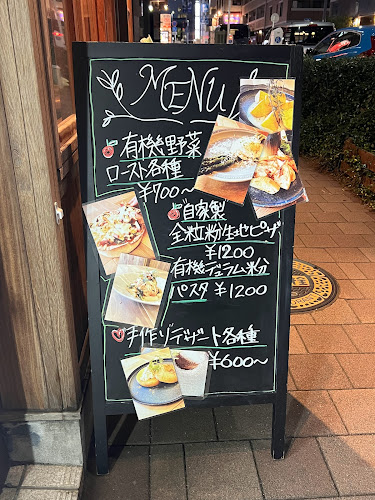 MENU
有機野菜
ロースト各種
¥700〜
自家製
全粒粉生地ピザ
¥1200
有機デュラム粉
パスタ ¥1200
手作りデザート各種
¥600〜